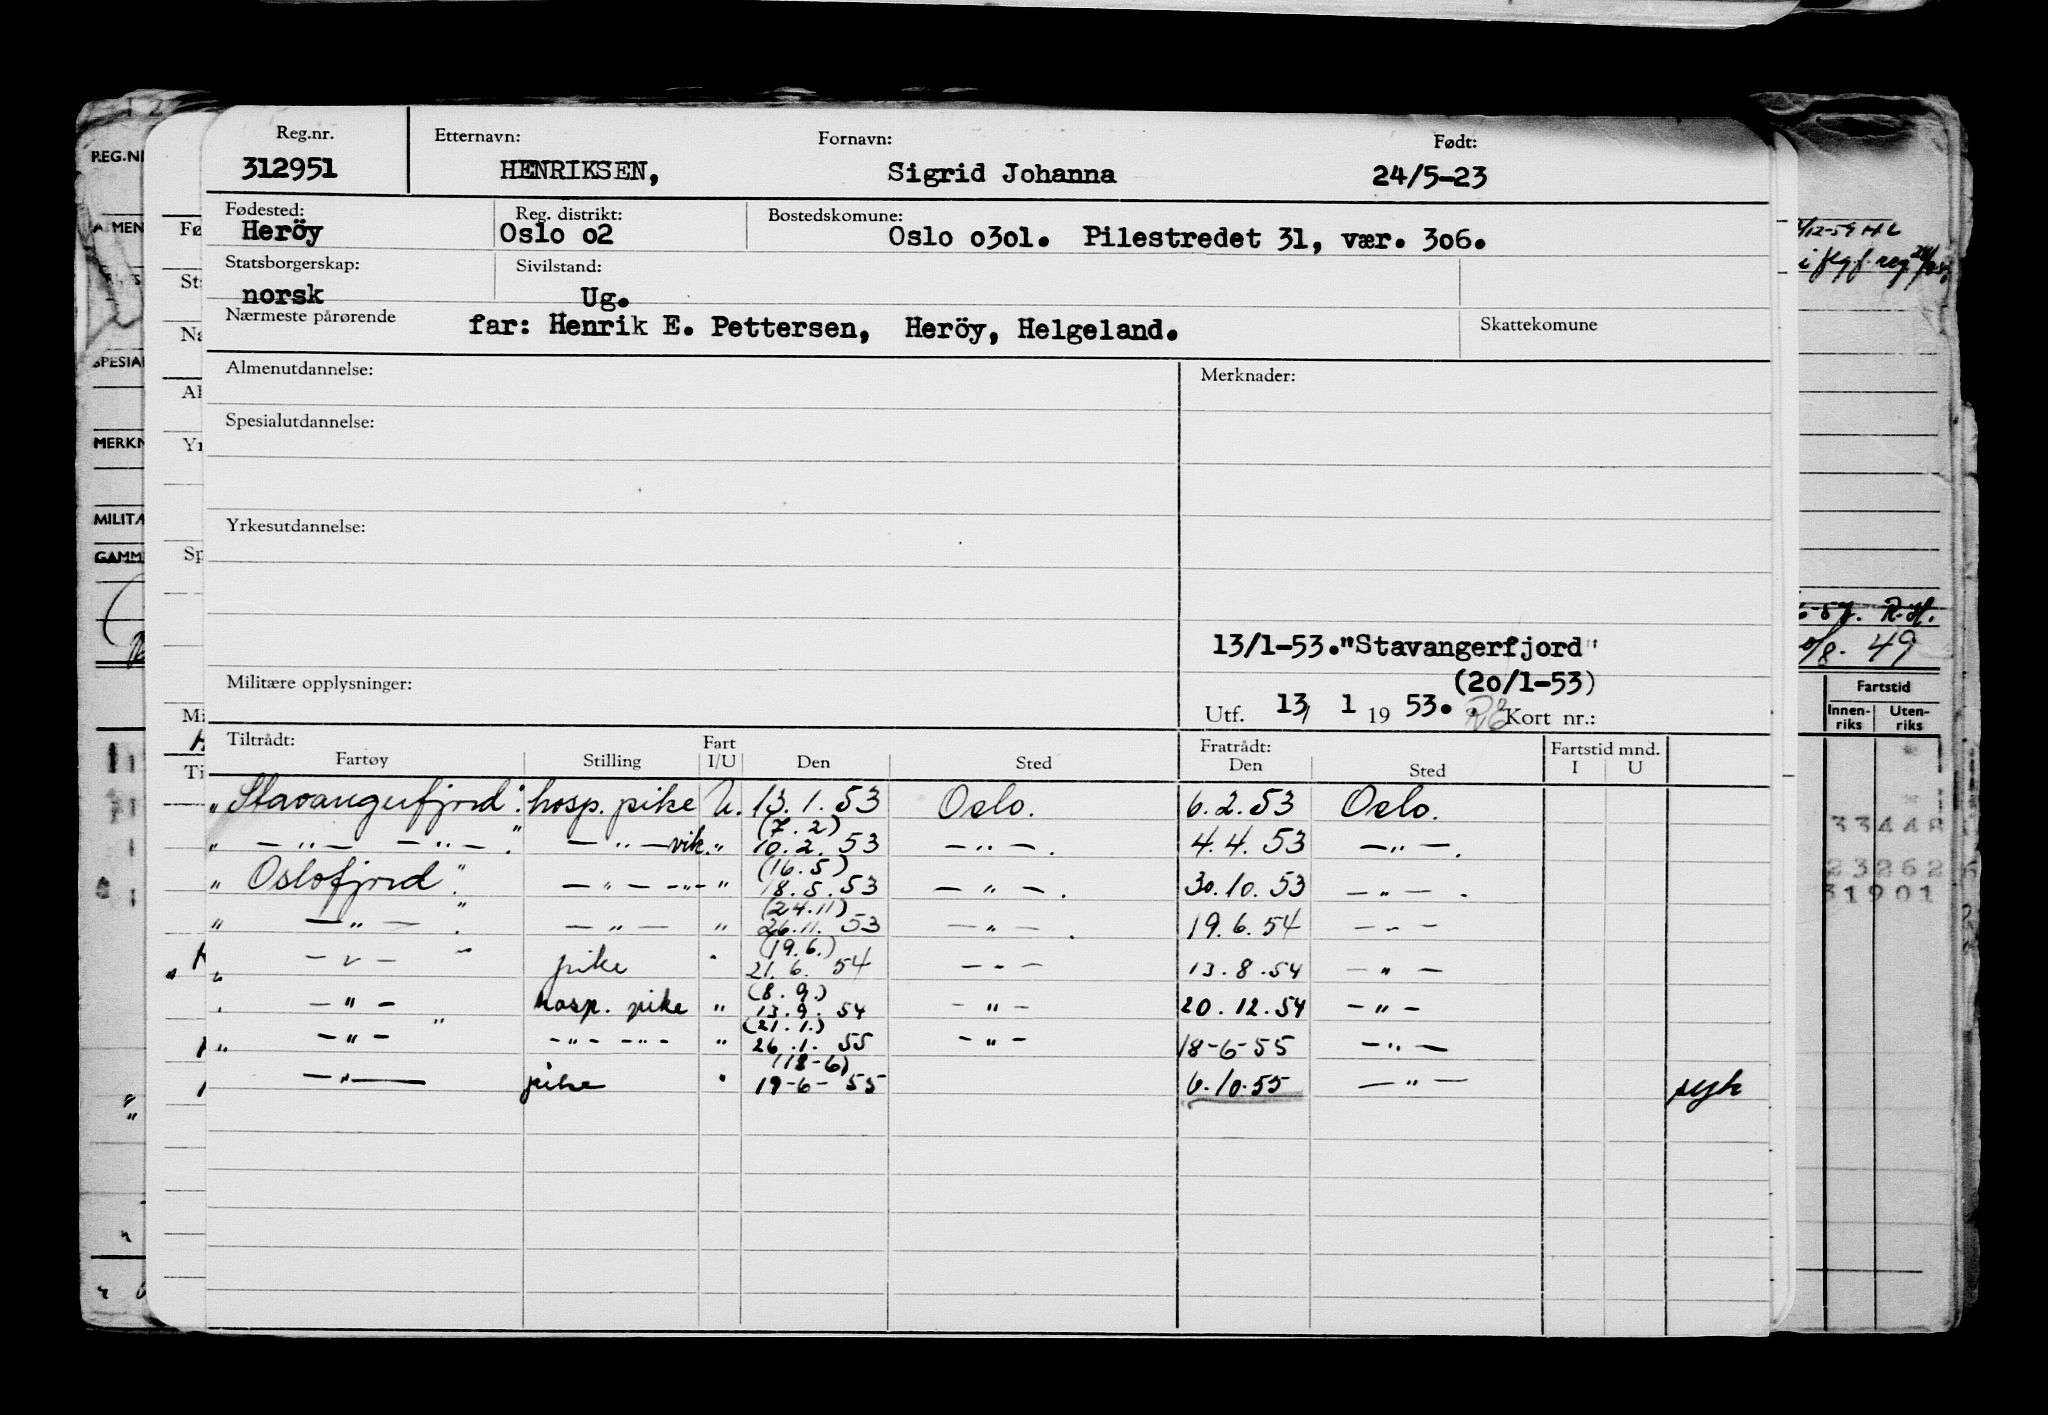 Reg.nr. Etternavn: Fornavn: Født:
312951 HENRIKSEN, Sigrid Johanna 24/5-23
Fødested: Reg. distrikt: Bostedskomune:
Heröy Oslo o2 Oslo o3o1. Pilestredet 31, vær. 3o6.
Statsborgerskap: Sivilstand:
norsk Ug.
Nærmeste pårørende far: Henrik E. Pettersen, Heröy, Helgeland. Skattekomune
Almenutdannelse: Merknader:
Spesialutdannelse:
Yrkesutdannelse:
13/1-53."Stavangerfjord"
Militære opplysninger: (2o/1-53)
Utf. 13/ 1 19 53. Kort nr.:
Tiltrådt: Fart Fratrådt: Fartstid mnd.
Fartøy Stilling I/U Den Sted Den Sted I U
"Stavangerfjord". hosp. pike U. 13.1.53 Oslo. 6.2.53 Oslo.
(7.2)
" — " — — " — ". — " — vik. " 10.2.53 — " — . 4.4.53 — " — .
(16.5)
" Oslofjord ". — " — - " - " 18.5.53 — " — . 30.10.53 — " — .
(24.11)
" — " — ". — " — " 26.11.53 — " — . 19.6.54 — " —
(19.6.)
" — " — " pike " 21.6.54 — " — 13.8.54 — " —
(8.9.)
" — " — hosp. pike " 13.9.54 — " — 20.12.54 — " —
(21.1.)
" — " — " - " - - " - " 26.1.55 — " — 18-6-55 — " —
(18-6)
— " — pike " 19-6-55 6.10.55 — " — syk
REG.N
SPESIAL
MERKN
MILITÆ
GAMM
Fø
St
Næ
Al
Yr
Sp
Mi
Ti
R.H.
49
Fartstid
Innen- Uten-
riks riks
33448
23262
31901